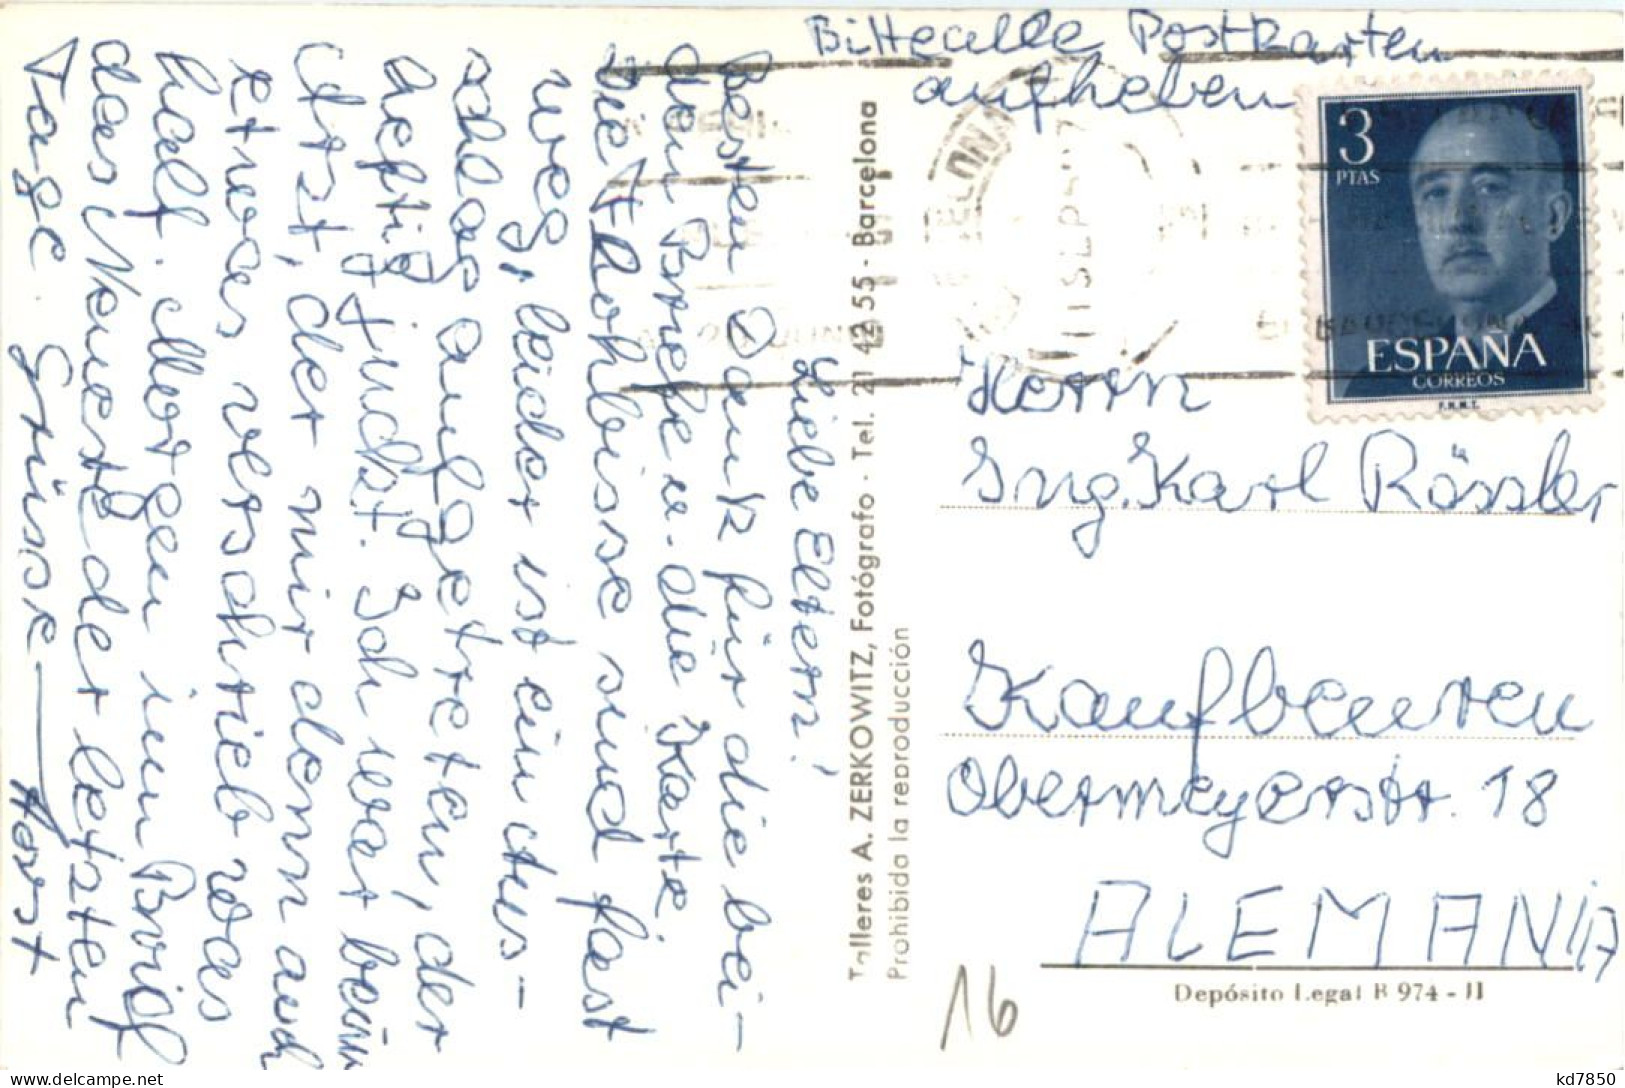 Bitte alle Postkarten
aufheben
Liebe Eltern!
Besten Dank für die bei-
den Briefe u. die Karte.
Die Flohbisse sind fast
weg, leider ist ein Aus-
schlag aufgetreten, der
heftig juckt. Ich war beim
Arzt, der mir dann auch
etwas verschrieb was
half. Morgen im Brief
das Neueste der letzten
Tage. Grüsse Horst
Talleres A. ZERKOWITZ, Fotógrafo - Tel. 21 42 55 - Barcelona
Prohibida la reproducción
3
PTAS
ESPAÑA
CORREOS
F.N.M.T.
Herrn
Ing. Karl Rössler
Kaufbeuren
Obermeyerstr. 18
ALEMANIA
Depósito Legal B 974 - II
16
kd7850